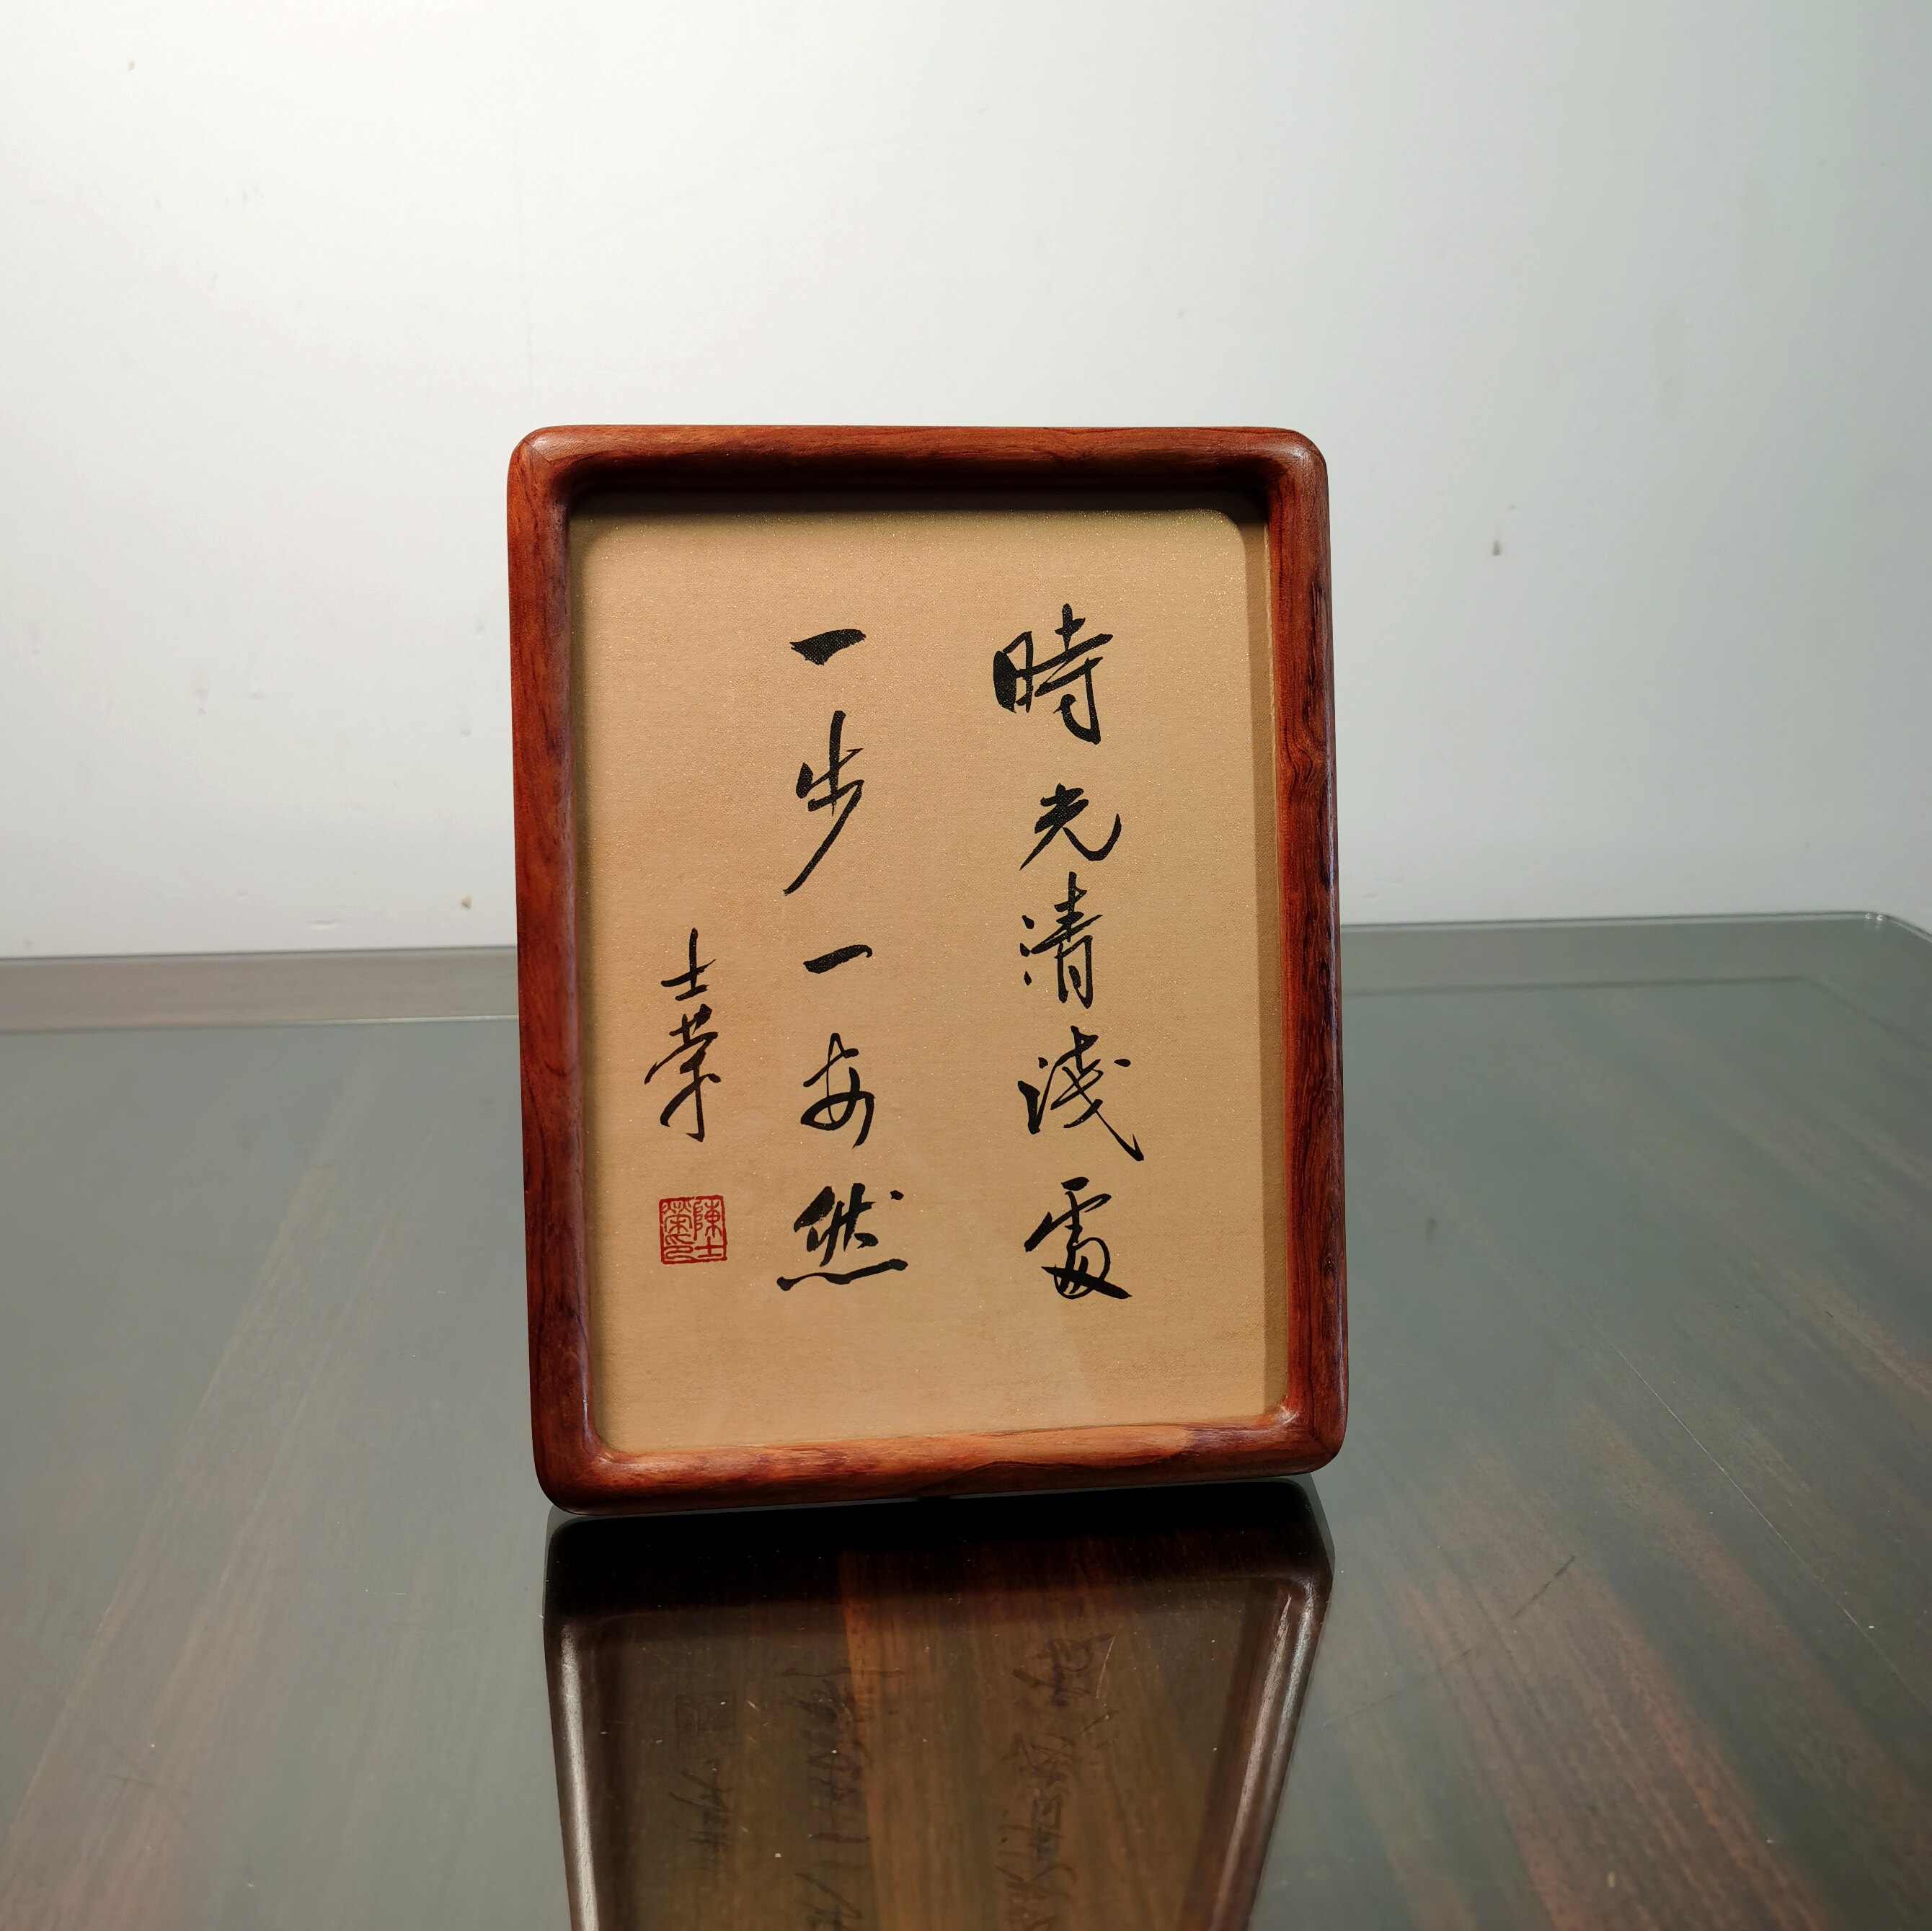 時光清淺處
一步一安然
士荣
陳士榮印